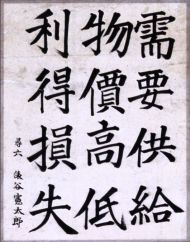 需要供給
物價高低
利得損失
尋六 澁谷憲太郎